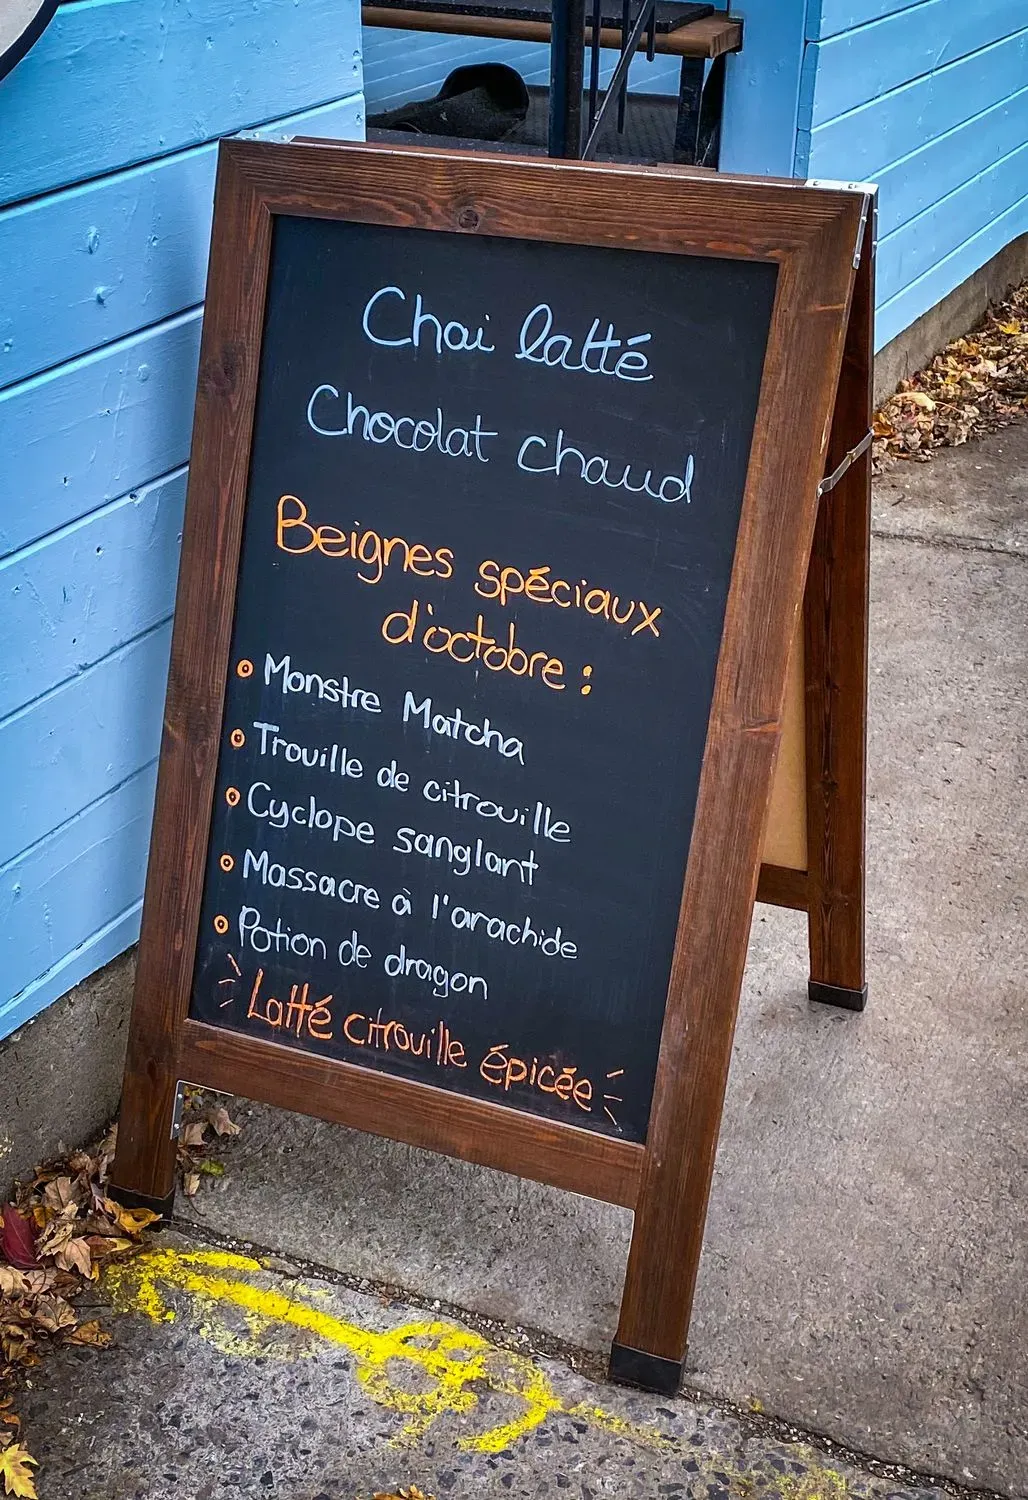 Chai latté
Chocolat chaud
Beignes spéciaux
d'octobre :
Monstre Matcha
Trouille de citrouille
Cyclope sanglant
Massacre à l'arachide
Potion de dragon
Latté citrouille épicée